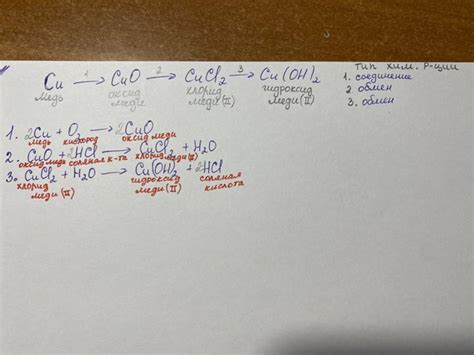 Cu 1→ CuO 2→ CuCl₂ 3→ Cu(OH)₂
медь оксид меди хлорид меди(II) гидроксид меди(II)
тип хим. р-ции
1. соединение
2. обмен
3. обмен
1. 2Cu + O₂ → 2CuO
медь кислород оксид меди
2. CuO + 2HCl → CuCl₂ + H₂O
оксид меди соляная к-та хлорид меди(II)
3. CuCl₂ + H₂O → Cu(OH)₂ + 2HCl
хлорид меди(II) гидроксид меди(II) соляная кислота